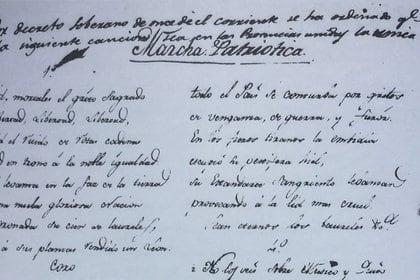 decreto soberano de once de el corriente se ha ordenado q.e
siguiente cancion sea en las Provincias unidas la unica
Marcha Patriotica.
mortales el grito Sagrado
Libertad, Libertad
el ruido de rotas cadenas
en trono á la noble igualdad
levanta en la faz de la tierra
nueva gloriosa
su cien de laureles
á sus plantas rendido un Leon.
Coro
todo el Pais se conturba por gritos
de venganza, de guerra, y furor.
En los fieros tiranos la embidia
escupió su pestifera hiel,
su Estandarte Sangriento levantan
provocando á la lid mas cruel.
Sean eternos los laureles &.a
4.º
los veis sobre Mexico y Quito